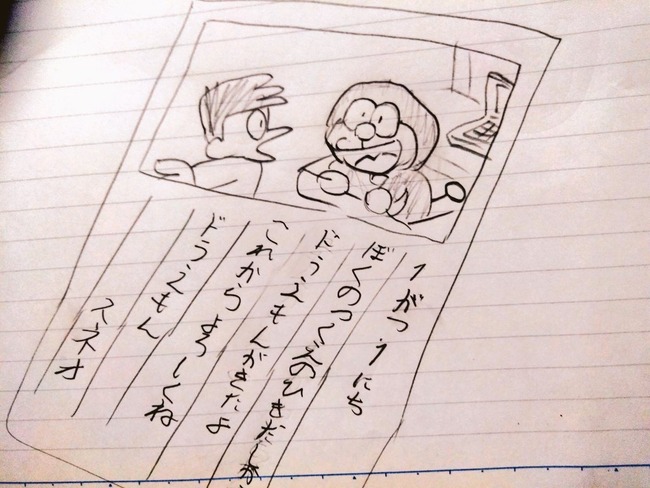 1がつ1にち
ぼくのつくえのひきだしから
ドラえもんがきたよ
これから よろしくね
ドラえもん
スネオ